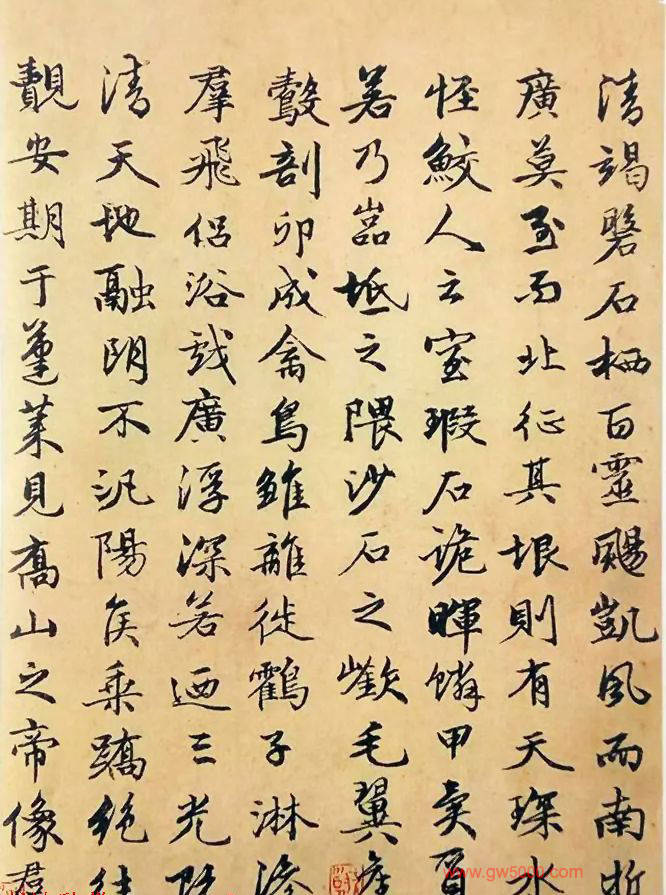 清竭磐石栖百靈颺凱風而南逝
廣莫至而北征其垠則有天琛水
怪鮫人之室瑕石詭暉鱗甲異質
若乃嵓坻之隈沙石之嶔毛翼產
鷇剖卵成禽鳧雛離徙鶴子淋滲
羣飛侶浴戲廣浮深若迺三光既
清天地融朗不汎陽侯乘蹻絕往
覿安期于蓬萊見喬山之帝像羣
www.gw5000.com